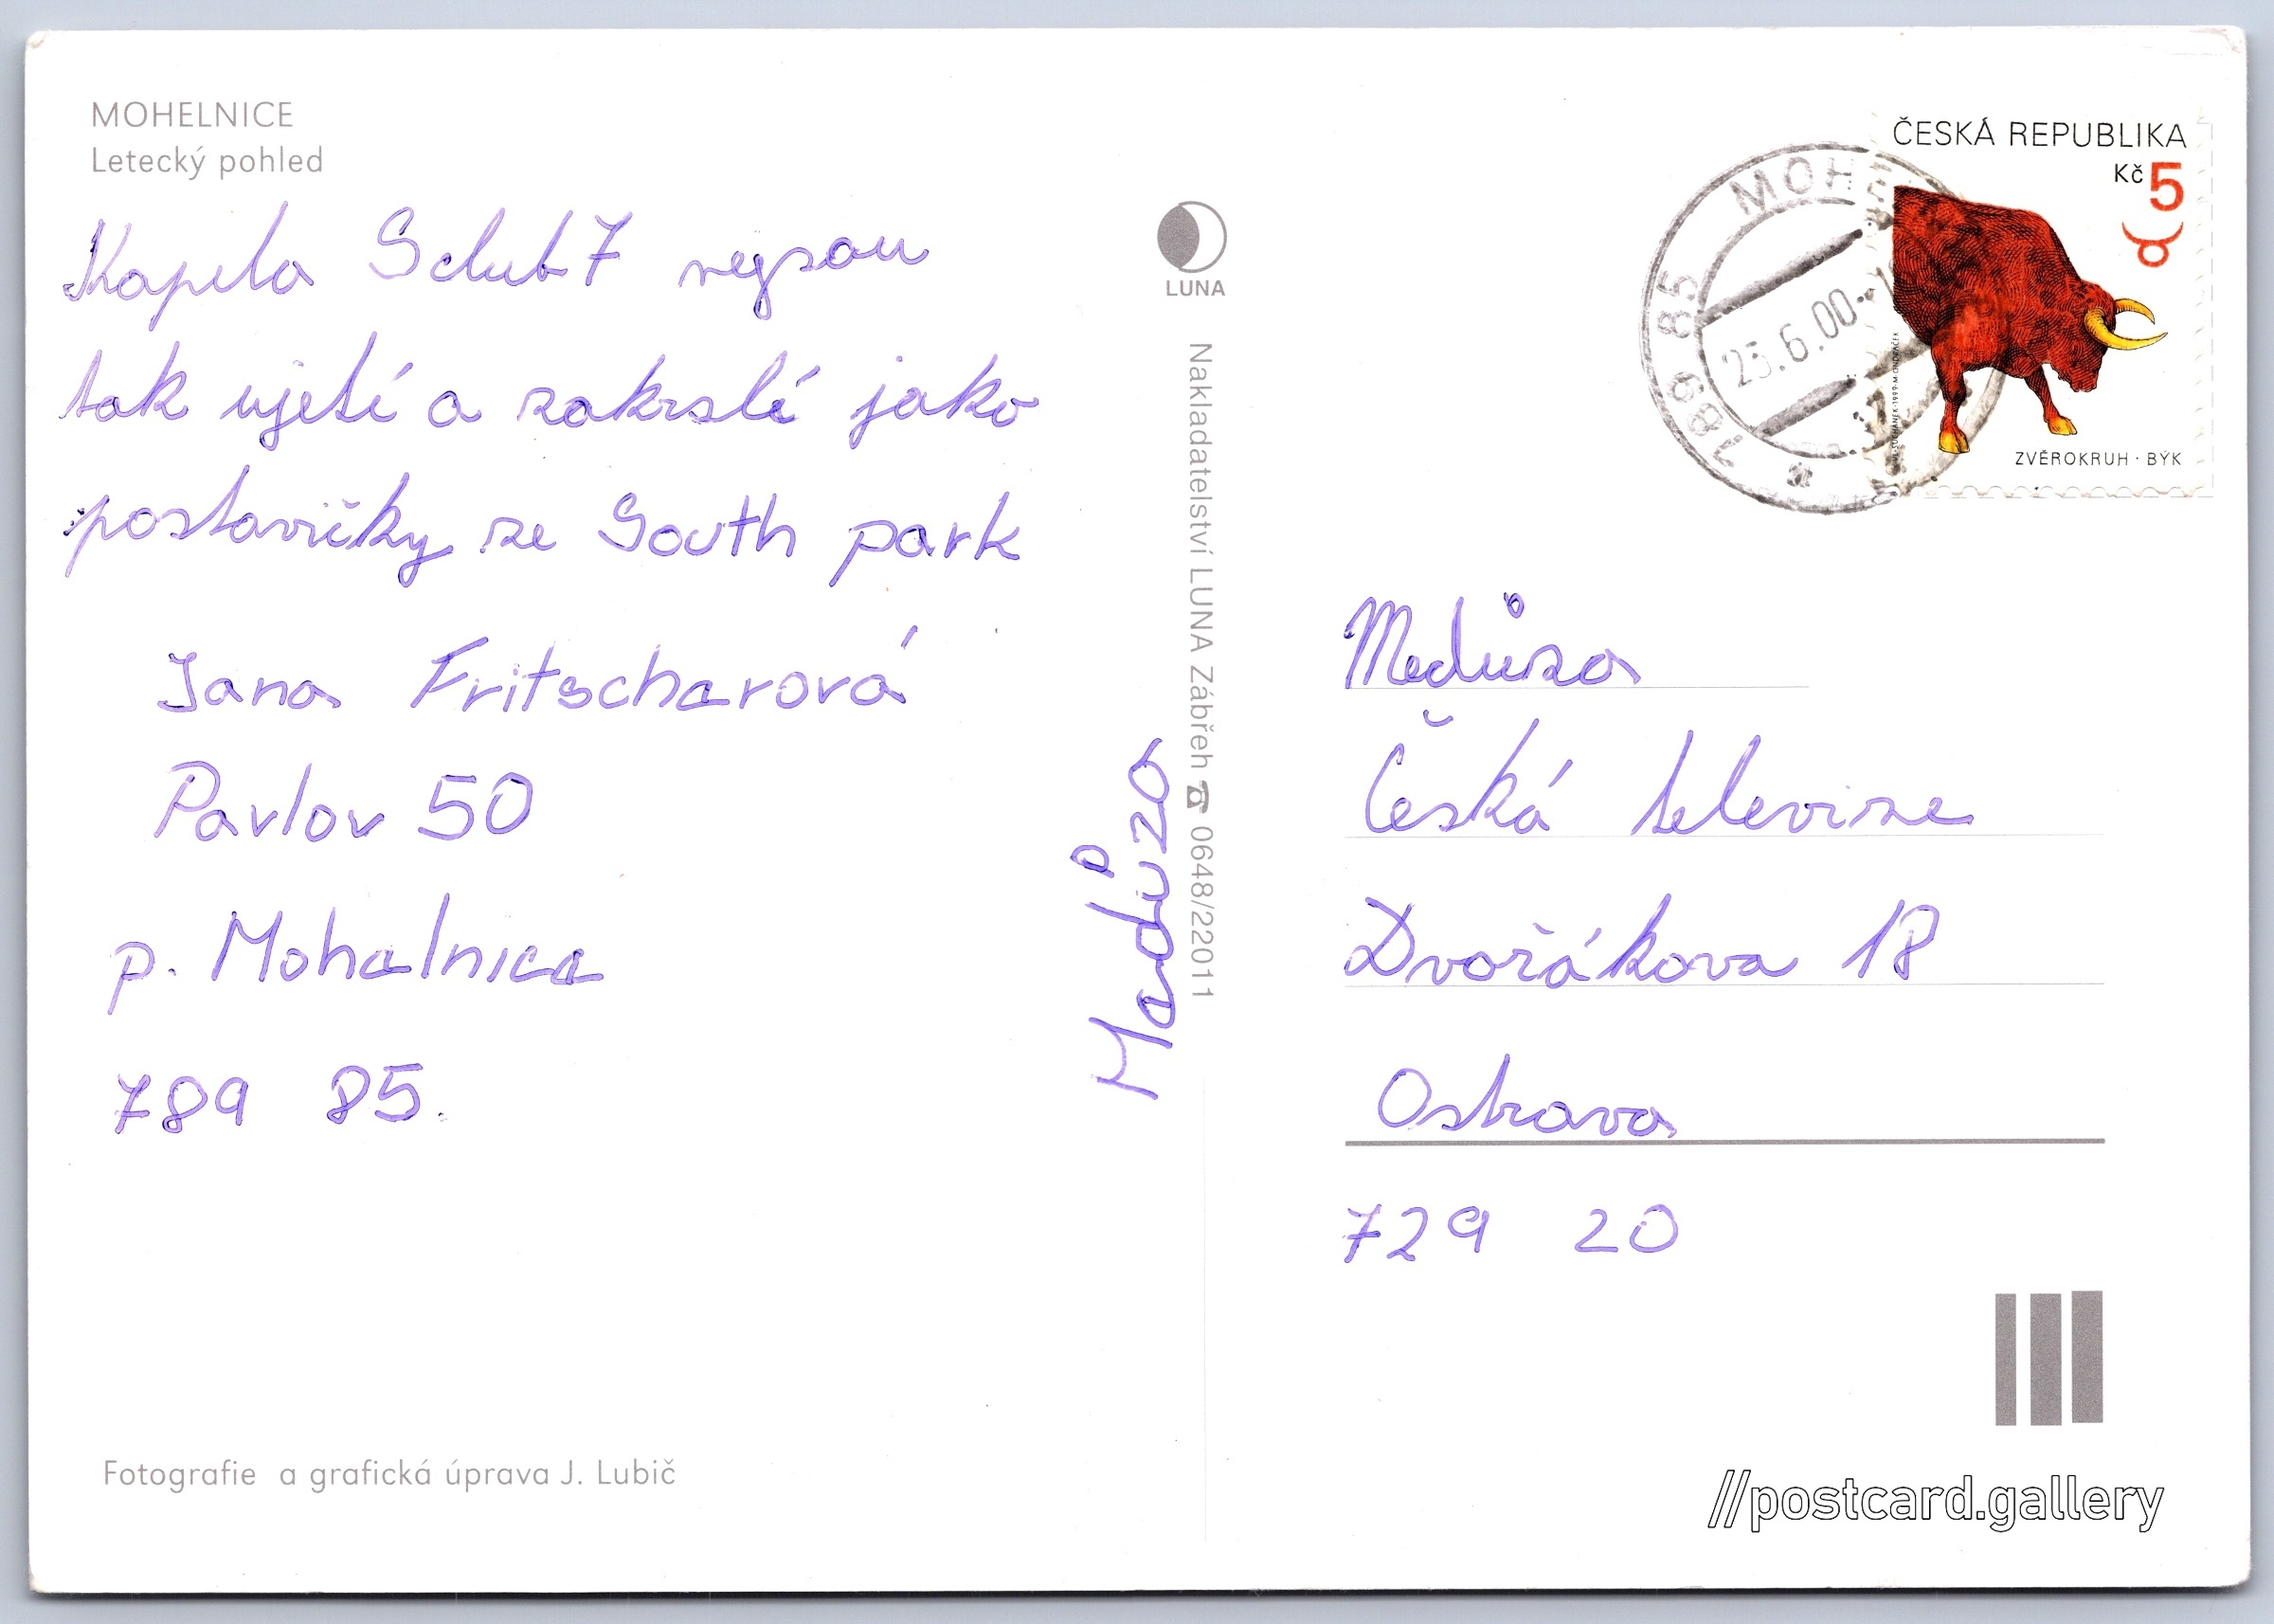 MOHELNICE
Letecký pohled
Kapela Sclub7 nejsou
tak ujetí a zakrslí jako
postavičky ze South park
Jana Fritscharová
Pavlov 50
p. Mohelnice
789 85.
Fotografie a grafická úprava J. Lubič
LUNA
Nakladatelství LUNA Zábřeh ☎ 0648/22011
Medůza
ČESKÁ REPUBLIKA
Kč 5
ZVĚROKRUH · BÝK
789 85 MOHE
23.6.00
Medůza
Česká televize
Dvořákova 18
Ostrava
729 20
//postcard.gallery